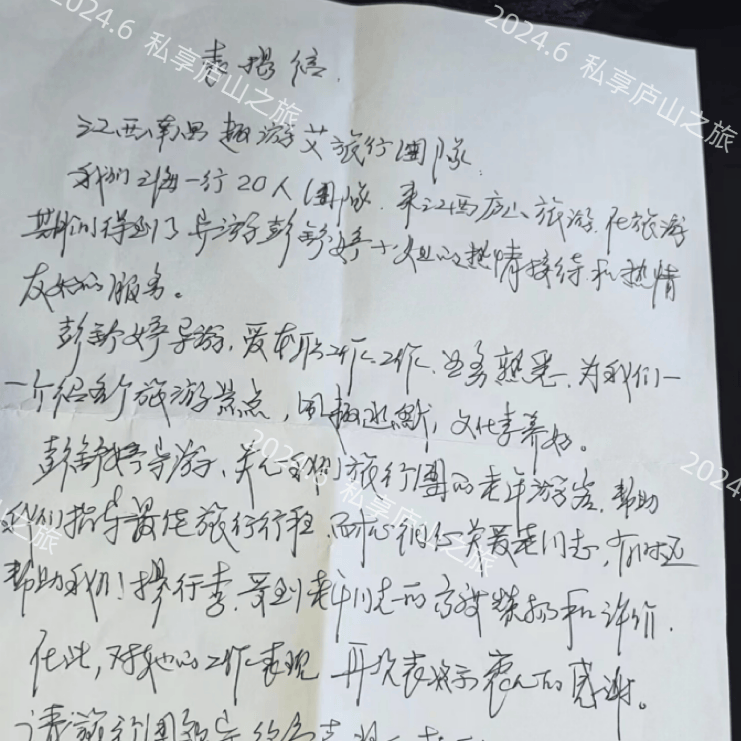 表扬信.
江西南昌趣游艾旅行团队:
我们上海一行20人团队.来江西庐山旅游.在旅游
期间得到了导游彭舒婷小姐的热情接待和热情
友好的服务。
彭舒婷导游.爱本职工作.工作.业务熟悉.为我们一
一介绍各个旅游景点,风趣幽默,文化素养好。
彭舒婷导游.关心我们旅行团的老年游客.帮助
我们指导最佳旅行行程.耐心细心关爱老同志,有时还
帮助我们提行李.受到老年同志的高度赞扬和评价.
在此,对她的工作表现 再次表示衷心的感谢。
请旅行团领导给

2024.6 私享庐山之旅
2024.6 私享庐山之旅
2024.6 私享庐山之旅
2024.6
之旅